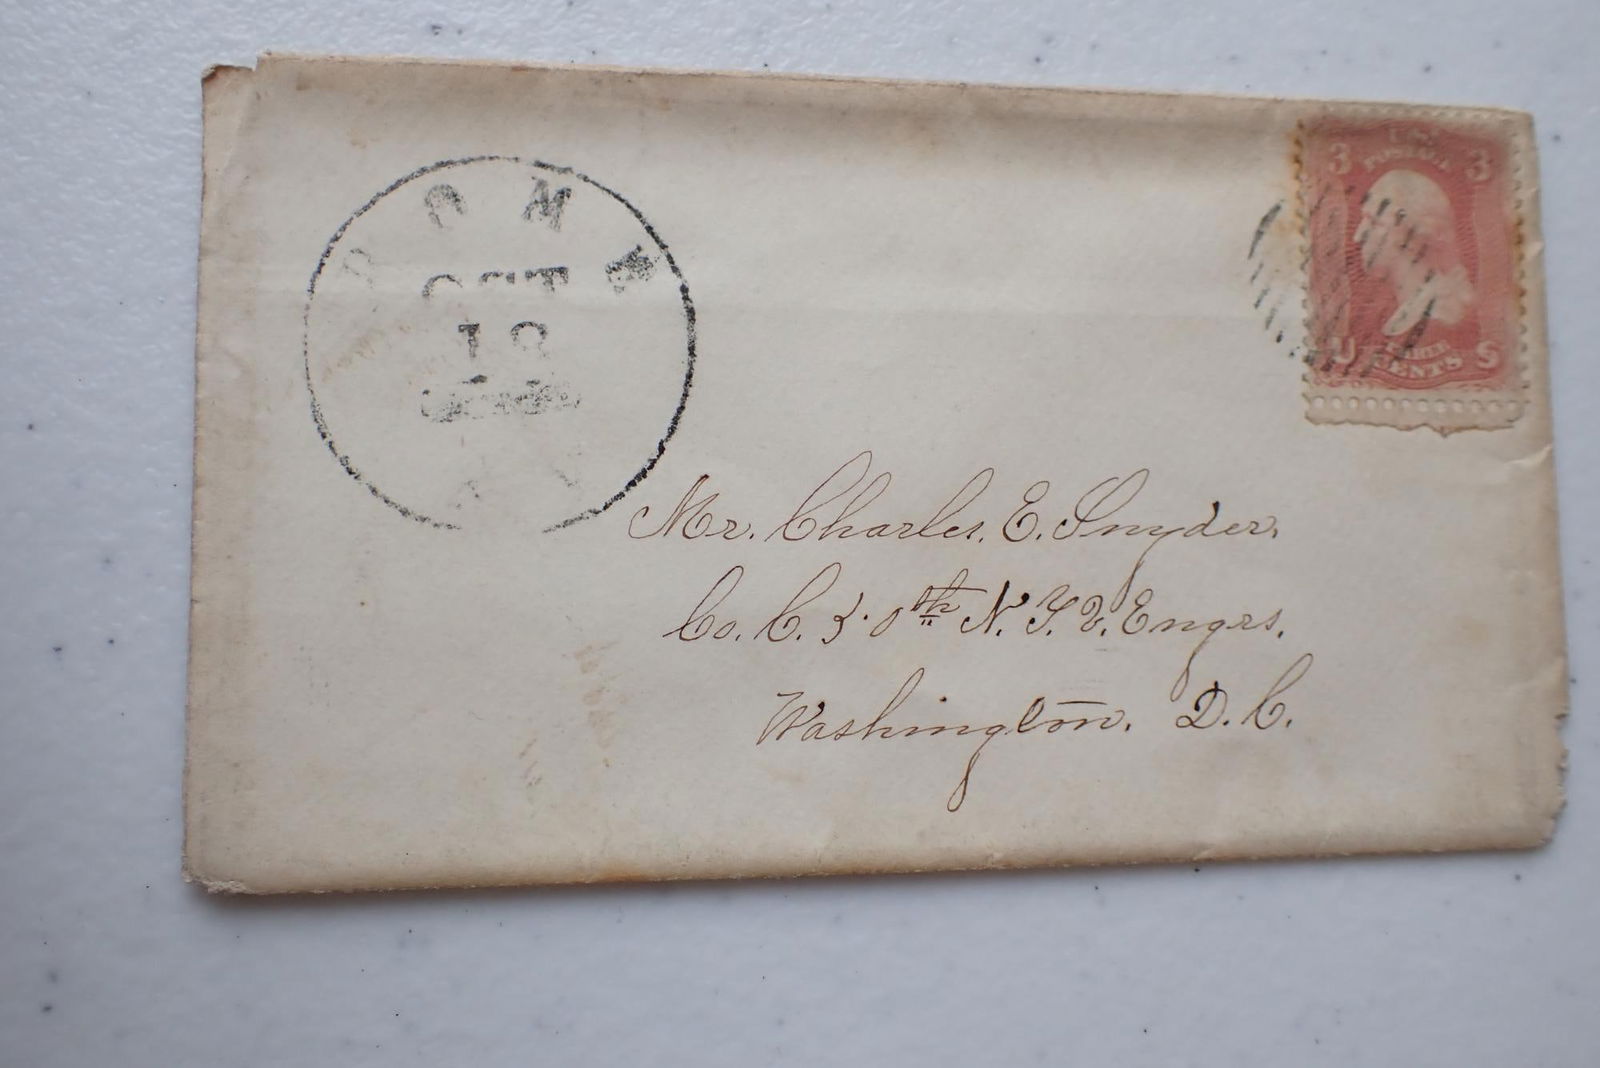 ROME
OCT
18
N Y
U.S.
POSTAGE
3 3
THREE
U CENTS S
Mr. Charles. E. Snyder.
Co. C. 50th N. Y. V. Engrs.
Washington. D. C.